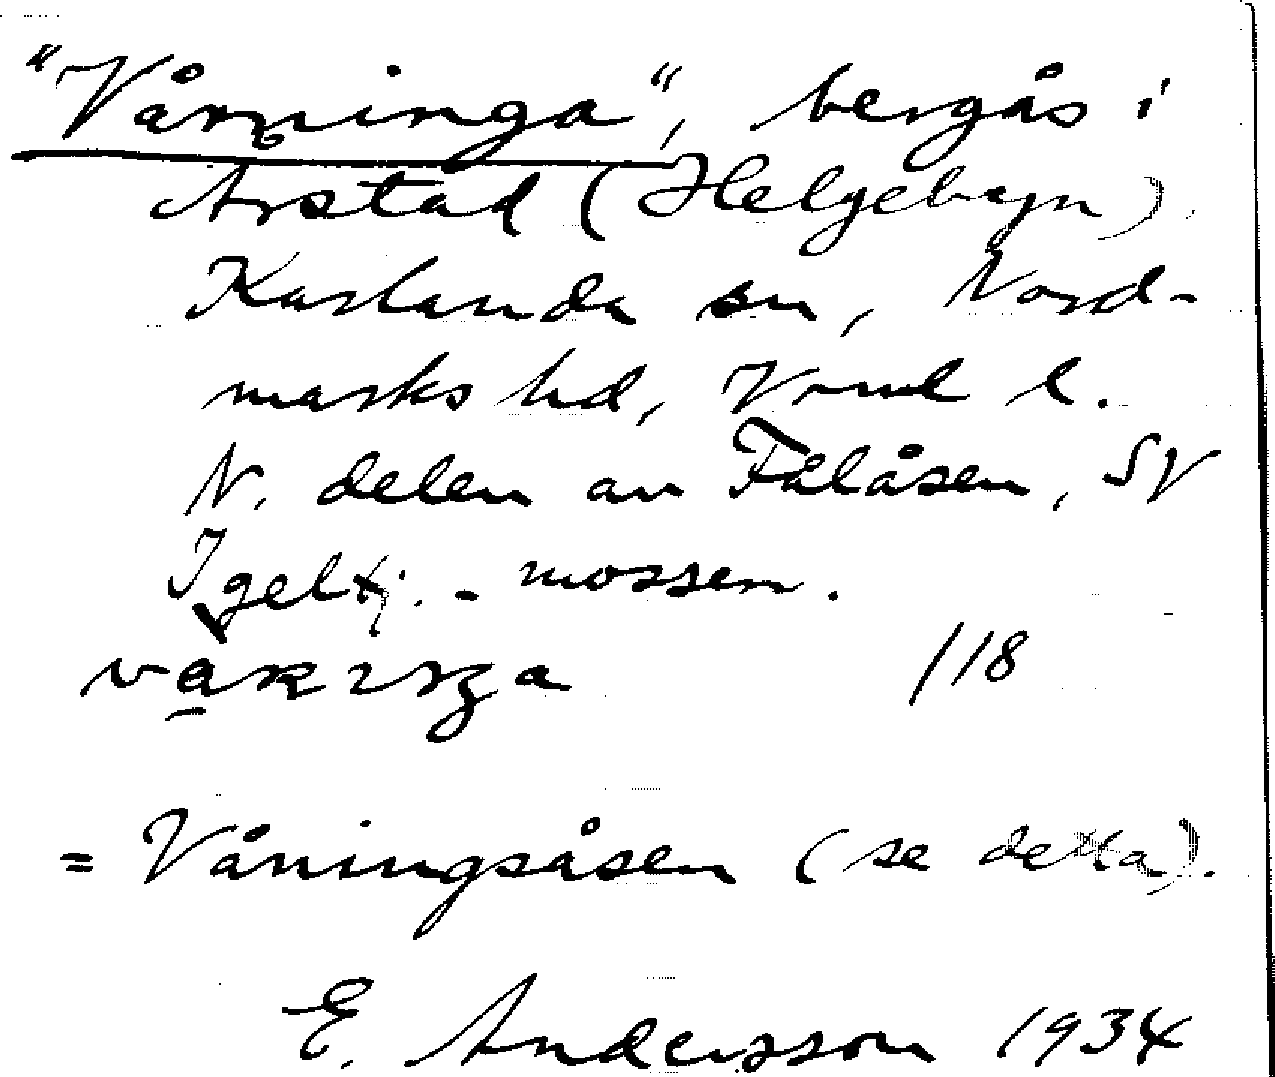 "Vårninga", bergås i
Årstad (Helgebyn)
Karlanda sn, Nord-
marks hd, Vrml l.
N. delen av Fälåsen, SV
Igeltj.-mossen.
/18
= Våningsåsen (se detta).
E. Andersson 1934